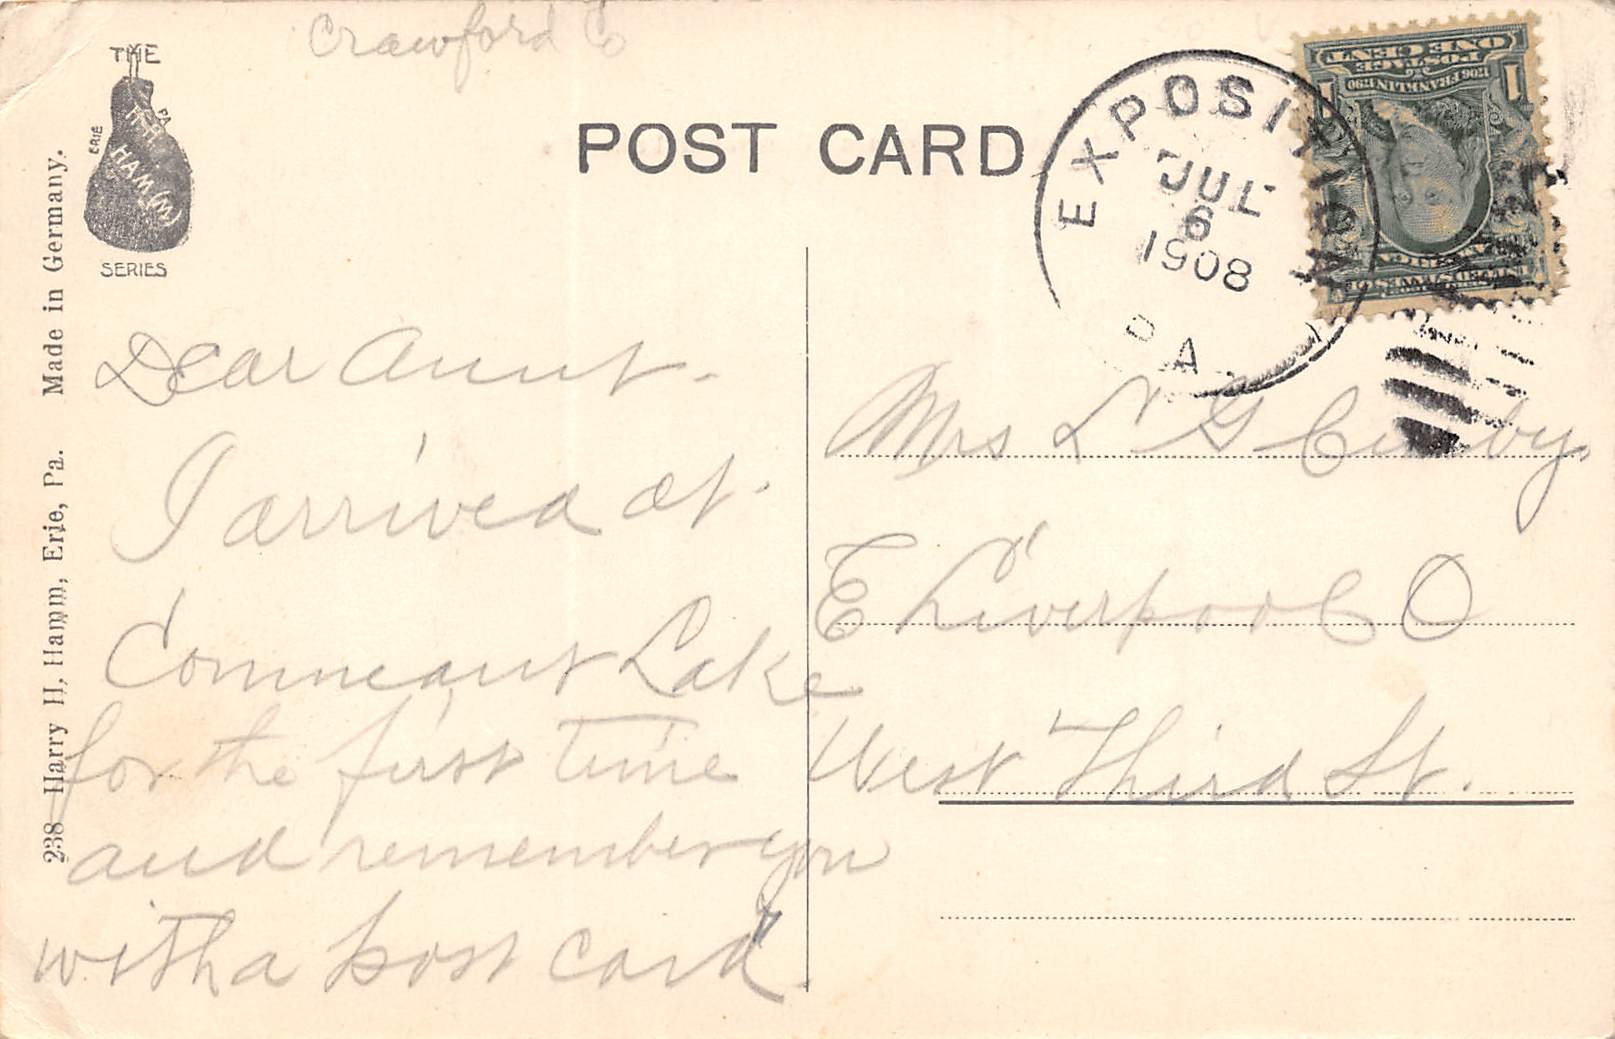 Crawford Co
THE
H.H.
HAM(M)
ERIE
PA
SERIES
POST CARD
EXPOSITION
JUL
6
1908
PA
1 1
ONE CENT
POSTAGE
1706 FRANKLIN 1790
238 Harry H. Hamm, Erie, Pa. Made in Germany.
Dear Aunt.
I arrived at
Conneaut Lake
for the first time
and remember you
with a post card.
Mrs L G
E Liverpool O
West Third St.